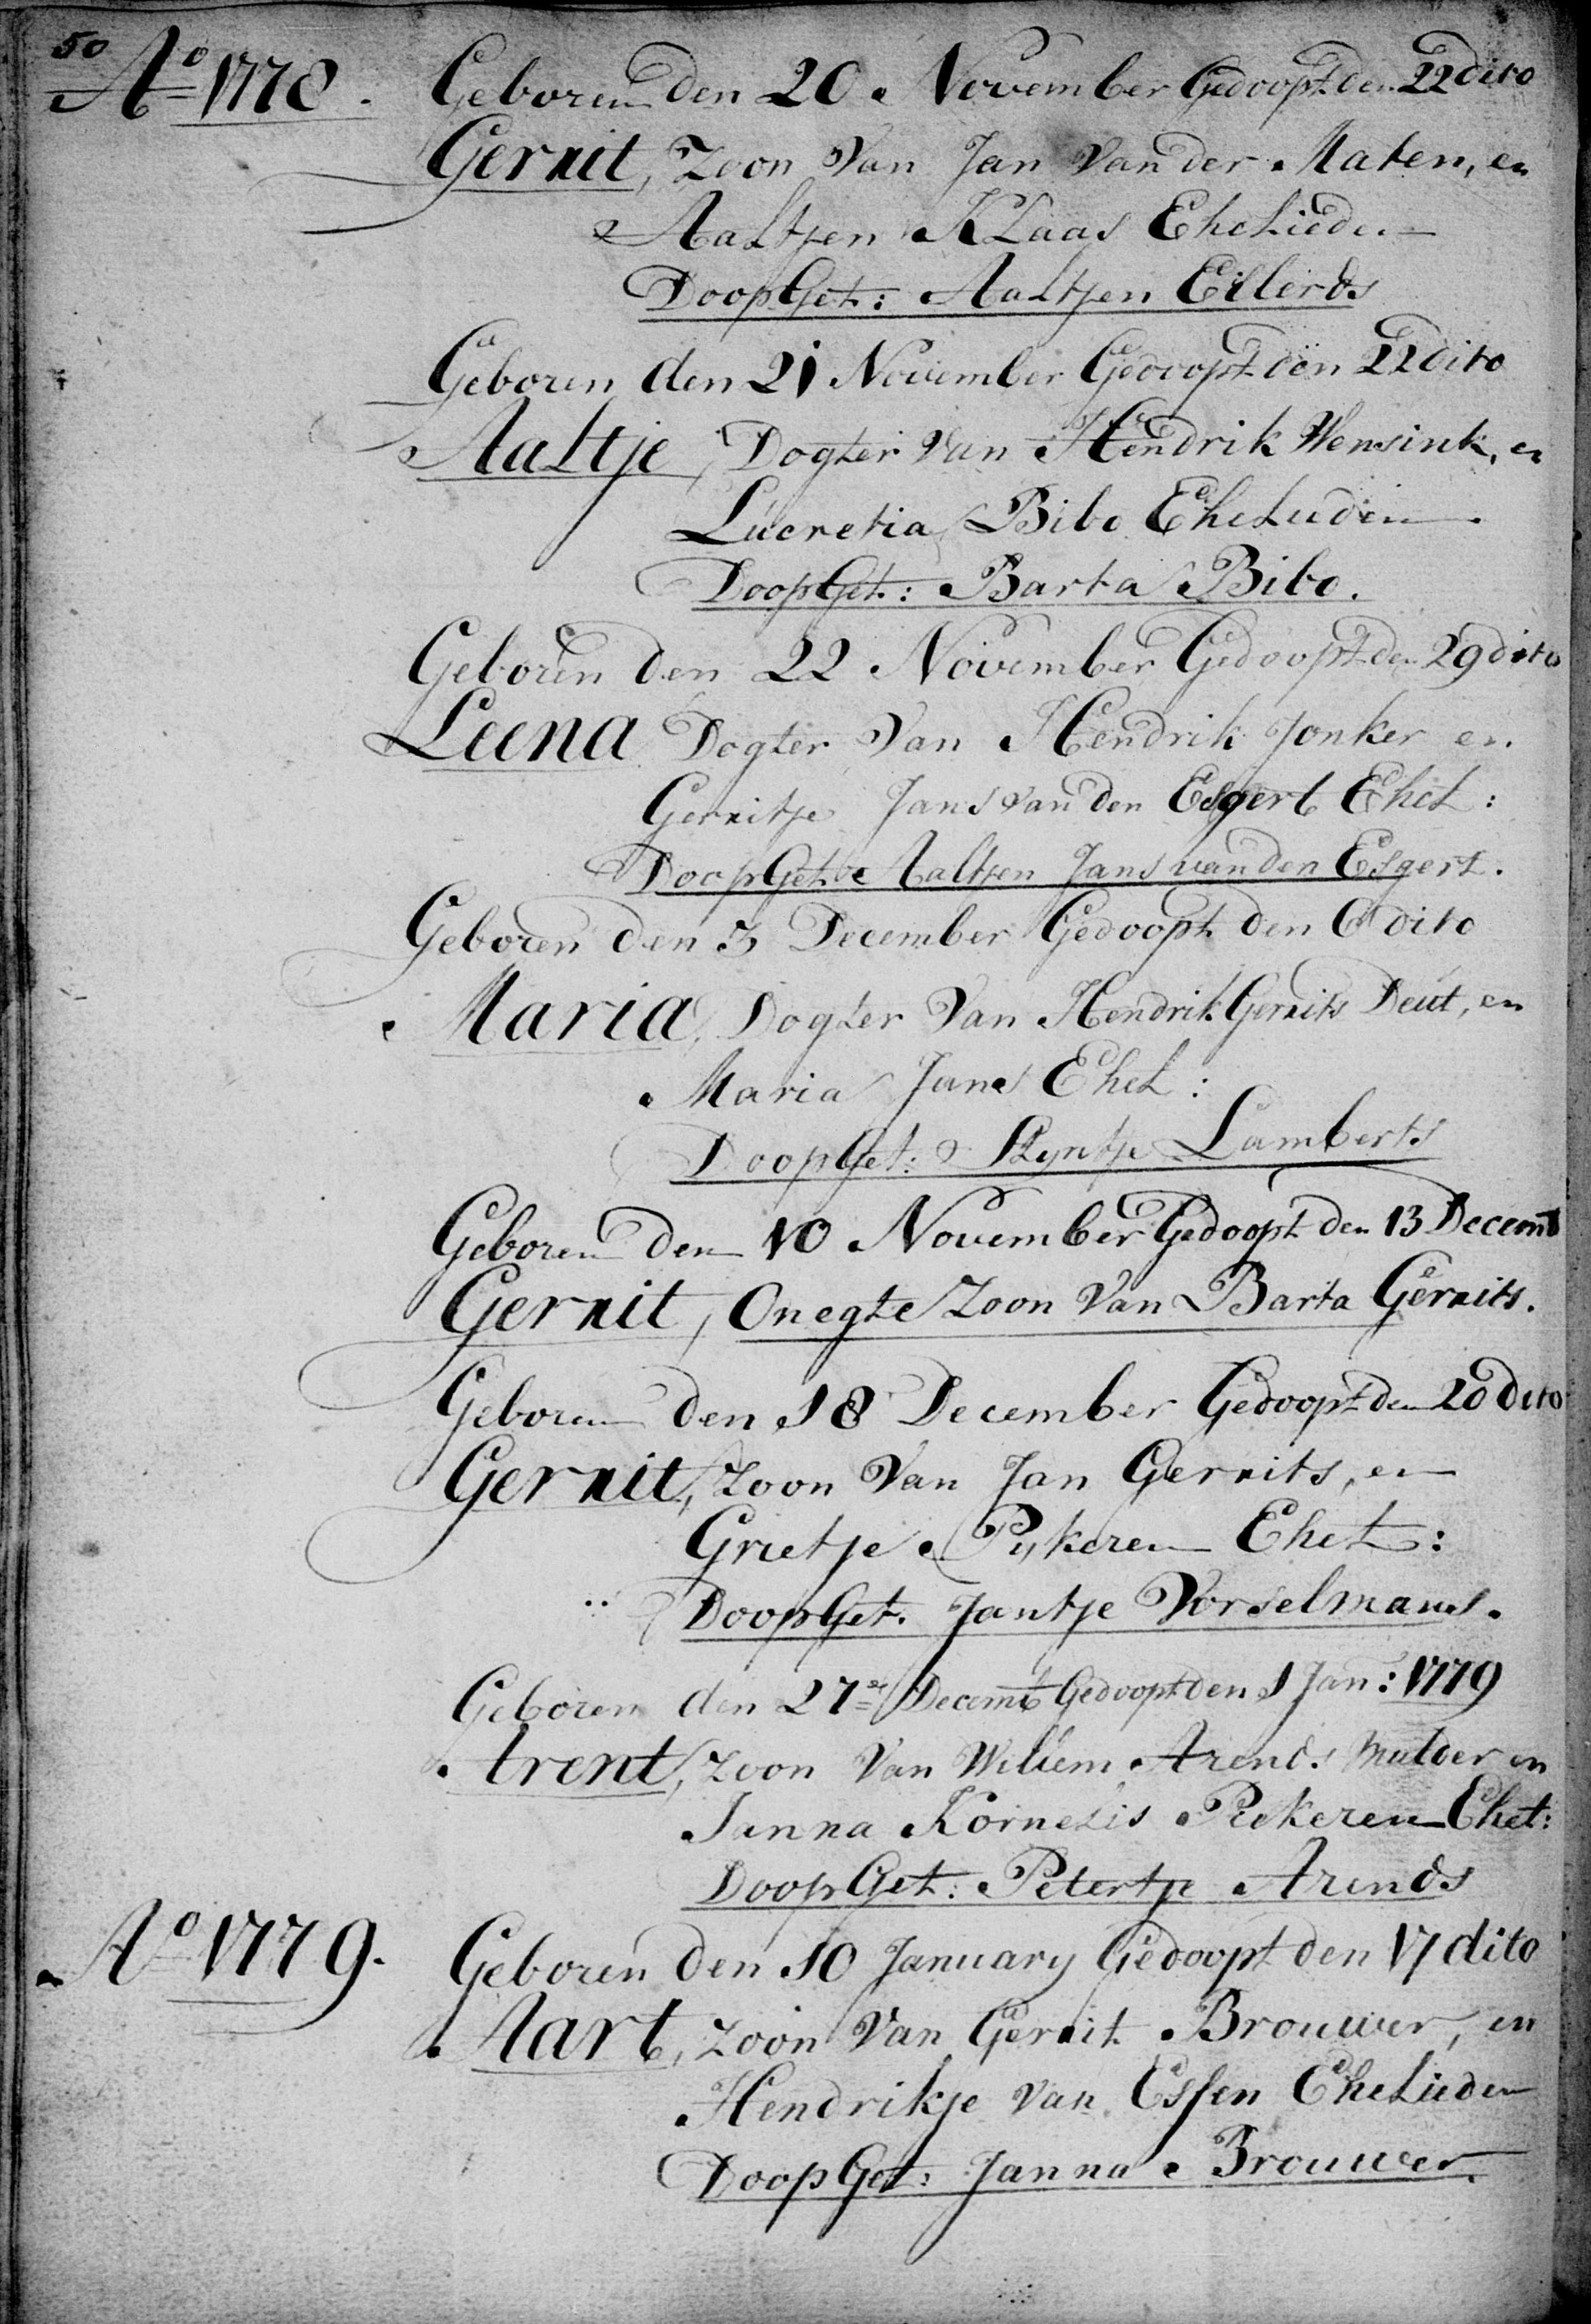 50
Ao 1778.
Geboren den 20 November Gedoopt den 22 dito
Gerrit, Zoon Van Jan Van der Maten, en
Aaltjen Klaas Ehelieden
DoopGet: Aaltjen Eilerds
Geboren den 21 November Gedoopt den 22 dito
Aaltje, Dogter Van Hendrik Wensink, en
Lucretia Bibo Eheluden
DoopGet: Barta Bibo.
Geboren den 22 November Gedoopt den 29 dito
Leena Dogter Van Hendrik Jonker en
Gerritje Jans van den Esgert Ehel:
DoopGet: Aaltjen Jans van den Esgert.
Geboren den 3 December Gedoopt den 6 dito
Maria, Dogter Van Hendrik Gerrits Deut, en
Maria Jans Ehel:
DoopGet: Styntje Lamberts
Geboren den 10 November Gedoopt den 13 Decemb
Gerrit, Onegte Zoon Van Barta Gerrits.
Geboren den 18 December Gedoopt den 20 dito
Gerrit, Zoon Van Jan Gerrits, en
Grietje Pykeren Ehel:
DoopGet. Jantje Vorselmans.
Geboren den 27e Decemb Gedoopt den 1 Jan: 1779
Arent, Zoon Van Willem Arends Mulder en
Janna Kornelis Piekeren Ehel:
DoopGet: Petertje Arends
Ao 1779.
Geboren den 10 January Gedoopt den 17 dito
Aart, Zoon Van Gerrit Brouwer, en
Hendrikje van Essen Ehelieden
DoopGet: Janna Brouwer.